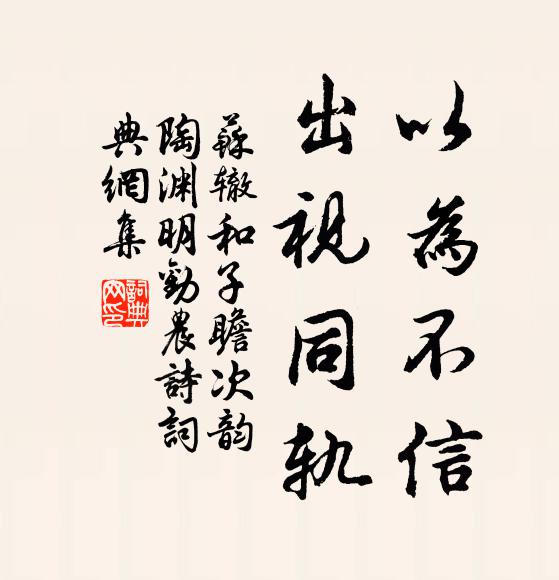 以為不信
出視同軌
蘇辙和子瞻次韵
陶渊明勸農詩詞
典網集
詞典
网印